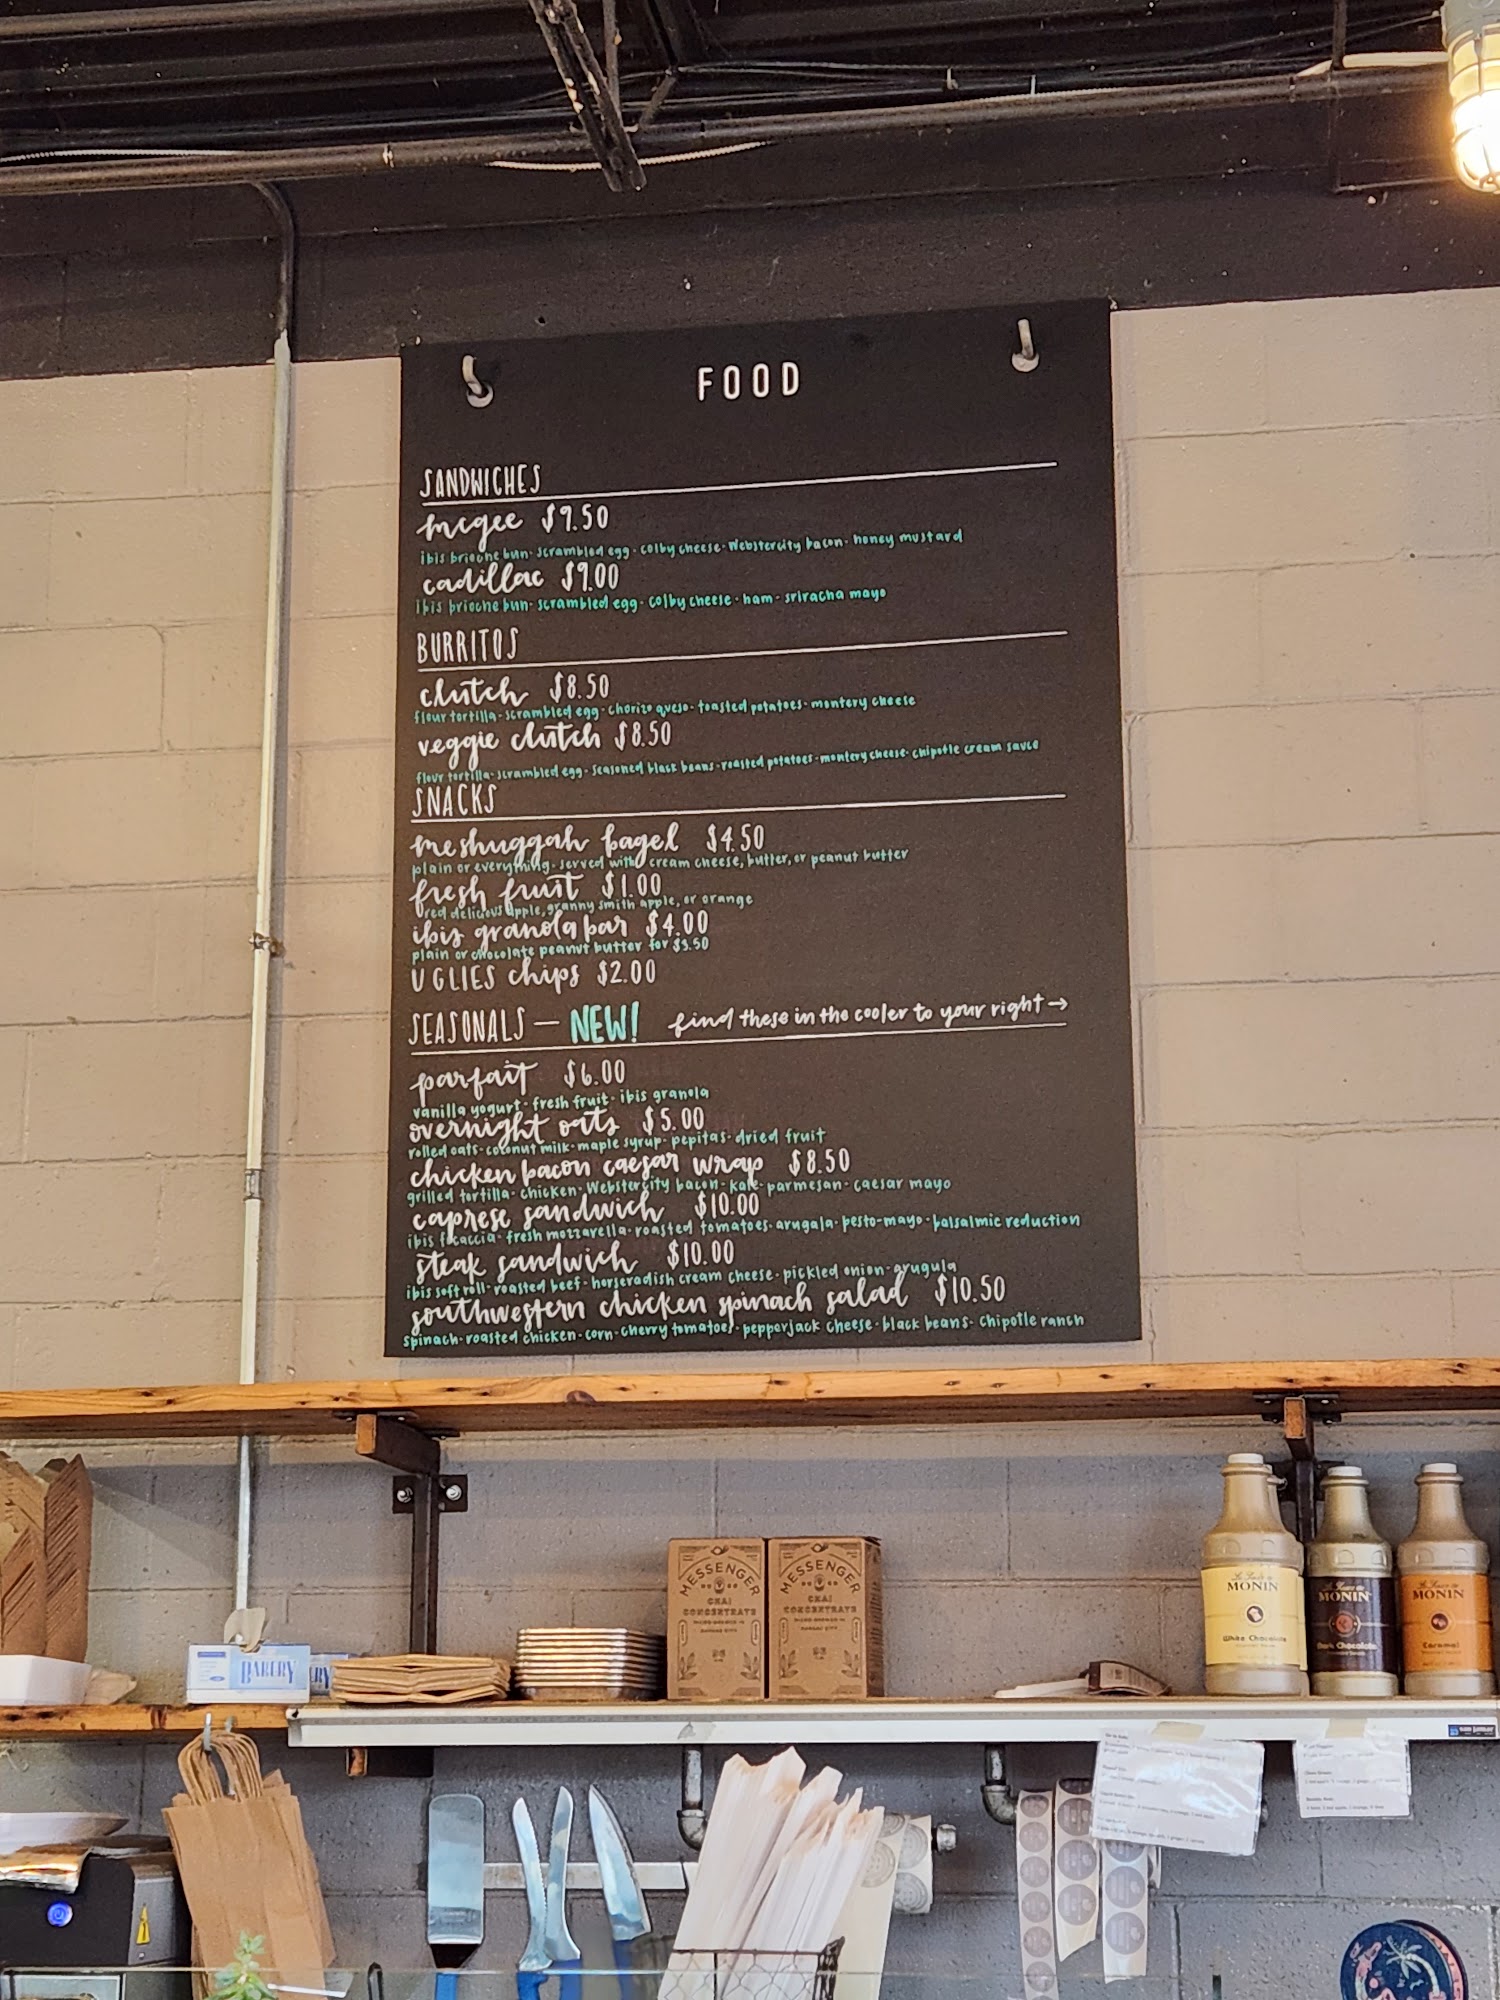 FOOD
SANDWICHES
mcgee $9.50
ibis brioche bun · scrambled egg · colby cheese · Webstercity bacon · honey mustard
cadillac $9.00
ibis brioche bun · scrambled egg · colby cheese · ham · sriracha mayo
BURRITOS
clutch $8.50
flour tortilla · scrambled egg · chorizo queso · toasted potatoes · montery cheese
veggie clutch $8.50
flour tortilla · scrambled egg · seasoned black beans · roasted potatoes · montery cheese · chipotle cream sauce
SNACKS
meshuggah bagel $4.50
plain or everything · served with cream cheese, butter, or peanut butter
fresh fruit $1.00
red delicious apple, granny smith apple, or orange
ibis granola bar $4.00
plain or chocolate peanut butter for $3.50
UGLIES chips $2.00
SEASONALS — NEW! find these in the cooler to your right →
parfait $6.00
vanilla yogurt · fresh fruit · ibis granola
overnight oats $5.00
rolled oats · coconut milk · maple syrup · pepitas · dried fruit
chicken bacon caesar wrap $8.50
grilled tortilla · chicken · Webstercity bacon · kale · parmesan · caesar mayo
caprese sandwich $10.00
ibis focaccia · fresh mozzarella · roasted tomatoes · arugala · pesto-mayo · balsalmic reduction
steak sandwich $10.00
ibis soft roll · roasted beef · horseradish cream cheese · pickled onion · arugula
southwestern chicken spinach salad $10.50
spinach · roasted chicken · corn · cherry tomatoes · pepperjack cheese · black beans · chipotle ranch
MESSENGER
CHAI
CONCENTRATE
KANSAS CITY
MESSENGER
CHAI
CONCENTRATE
KANSAS CITY
MONIN
White Chocolate
MONIN
Dark Chocolate
MONIN
Caramel
BAKERY